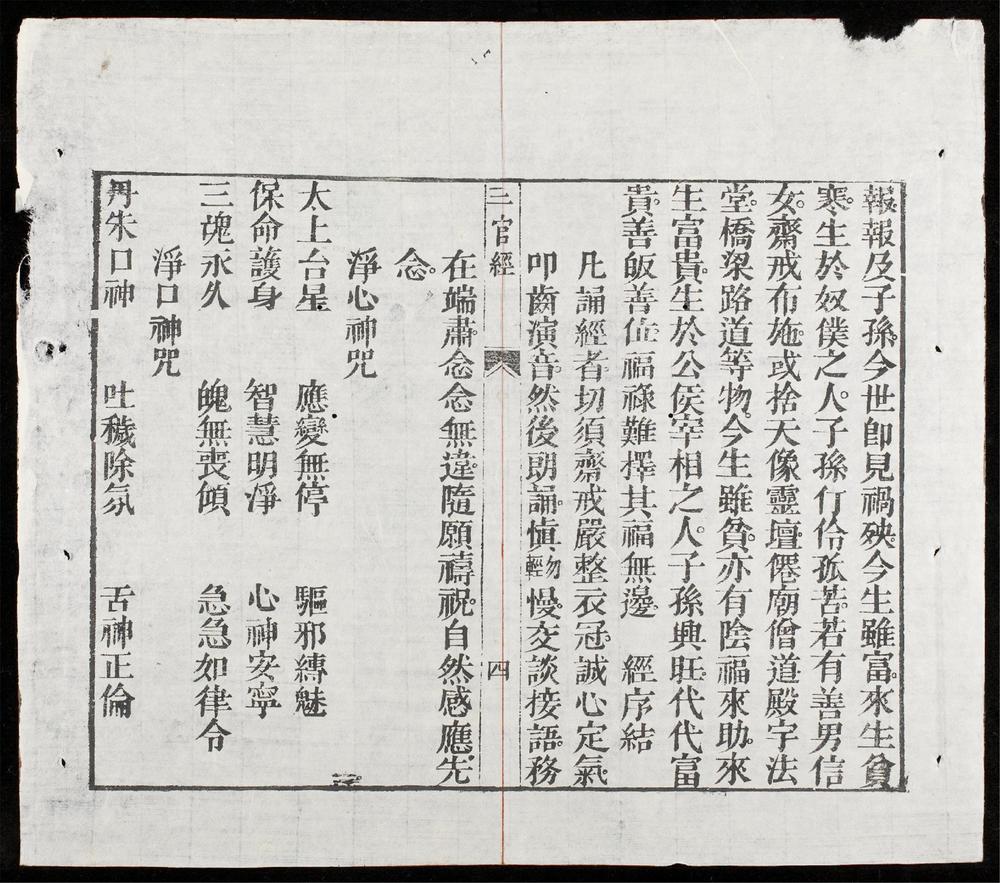 報報及子孫今世卽見禍殃。今生雖富。來生貧
寒。生於奴僕之人。子孫仃伶孤苦。若有善男信
女。齋戒布施。或捨天像靈壇。僊廟僧道殿宇法
堂。橋梁路道等物。今生雖貧。亦有陰福來助。來
生富貴。生於公侯宰相之人。子孫興旺。代代富
貴。善皈善位。福祿難擇其福無邊。 經序結
凡誦經者。切須齋戒嚴整衣冠。誠心定氣
叩齒演音。然後朗誦。慎勿輕慢。交談接語。務
三官經 四
在端肅。念念無違。隨願禱祝。自然感應。先
念。
淨心神咒
太上台星 應變無停 驅邪縛魅
保命護身 智慧明淨 心神安寧
三魂永久 魄無喪傾 急急如律令
淨口神咒
丹朱口神 吐穢除氛 舌神正倫